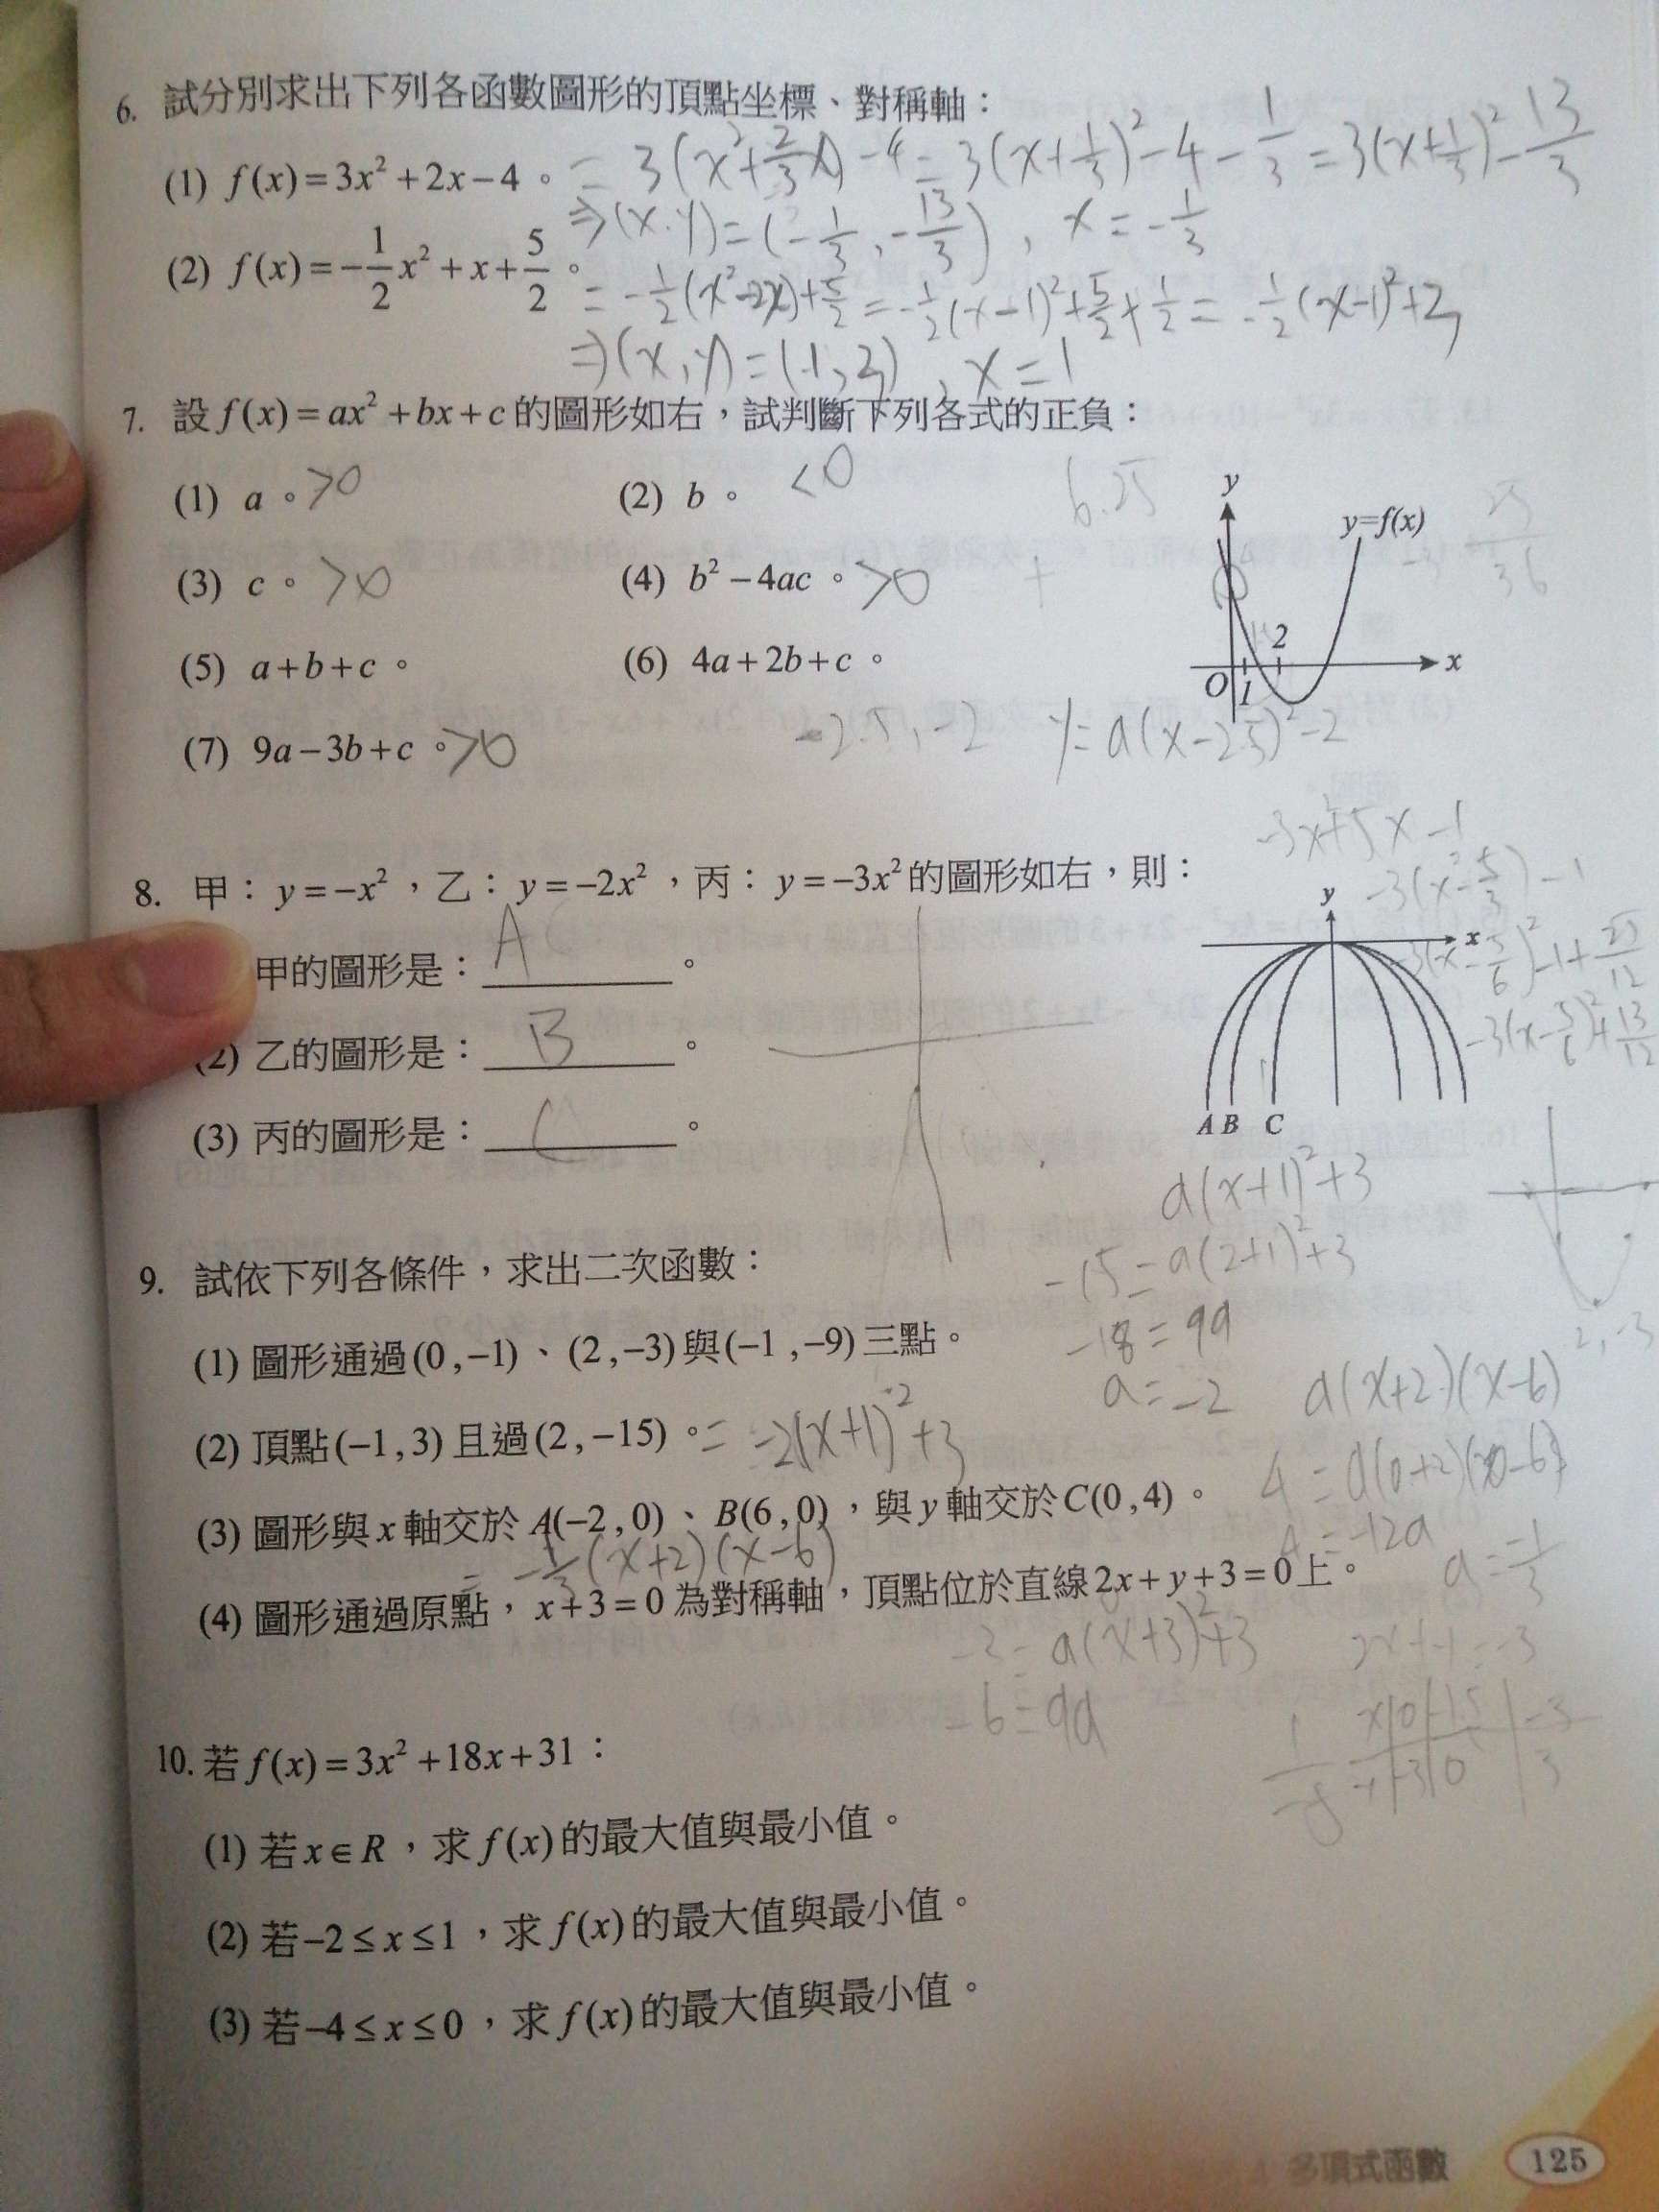 6. 試分別求出下列各函數圖形的頂點坐標、對稱軸：
(1) f(x)=3x²+2x−4。 = 3(x²+2/3x)−4 = 3(x+1/3)²−4−1/3 = 3(x+1/3)²−13/3
⇒(x,y)=(−1/3,−13/3), x=−1/3
(2) f(x)=−1/2x²+x+5/2。 = −1/2(x²−2x)+5/2 = −1/2(x−1)²+5/2+1/2 = −1/2(x−1)²+2,
⇒(x,y)=(1,2), x=1
7. 設f(x)=ax²+bx+c的圖形如右，試判斷下列各式的正負：
(1) a。>0 (2) b。<0
6.25
(3) c。>0 (4) b²−4ac。>0
(5) a+b+c。 (6) 4a+2b+c。
(7) 9a−3b+c。>0
y
y=f(x)
2
x
O 1
25/36
−2.5,−2 y=a(x−2.5)²−2
−3x²+5x−1
8. 甲：y=−x²，乙：y=−2x²，丙：y=−3x²的圖形如右，則：
甲的圖形是：A。
(2) 乙的圖形是：B。
(3) 丙的圖形是：C。
y
x
A B C
−3(x²−5/3)−1
−3(x−5/6)²−1+25/12
−3(x−5/6)²+13/12
9. 試依下列各條件，求出二次函數：
(1) 圖形通過(0,−1)、(2,−3)與(−1,−9)三點。
(2) 頂點(−1,3)且過(2,−15)。= −2(x+1)²+3
(3) 圖形與x軸交於A(−2,0)、B(6,0)，與y軸交於C(0,4)。
= −1/3(x+2)(x−6)
(4) 圖形通過原點，x+3=0為對稱軸，頂點位於直線2x+y+3=0上。
a(x+1)²+3
−15=a(2+1)²+3
−18=9a
a=−2
2,−3
a(x+2)(x−6)
4=a(0+2)(0−6)
4=−12a
a=−1/3
−3=a(x+3)²+3
−6=9a
10. 若f(x)=3x²+18x+31：
(1) 若x∈R，求f(x)的最大值與最小值。
(2) 若−2≤x≤1，求f(x)的最大值與最小值。
(3) 若−4≤x≤0，求f(x)的最大值與最小值。
多項式函數 125